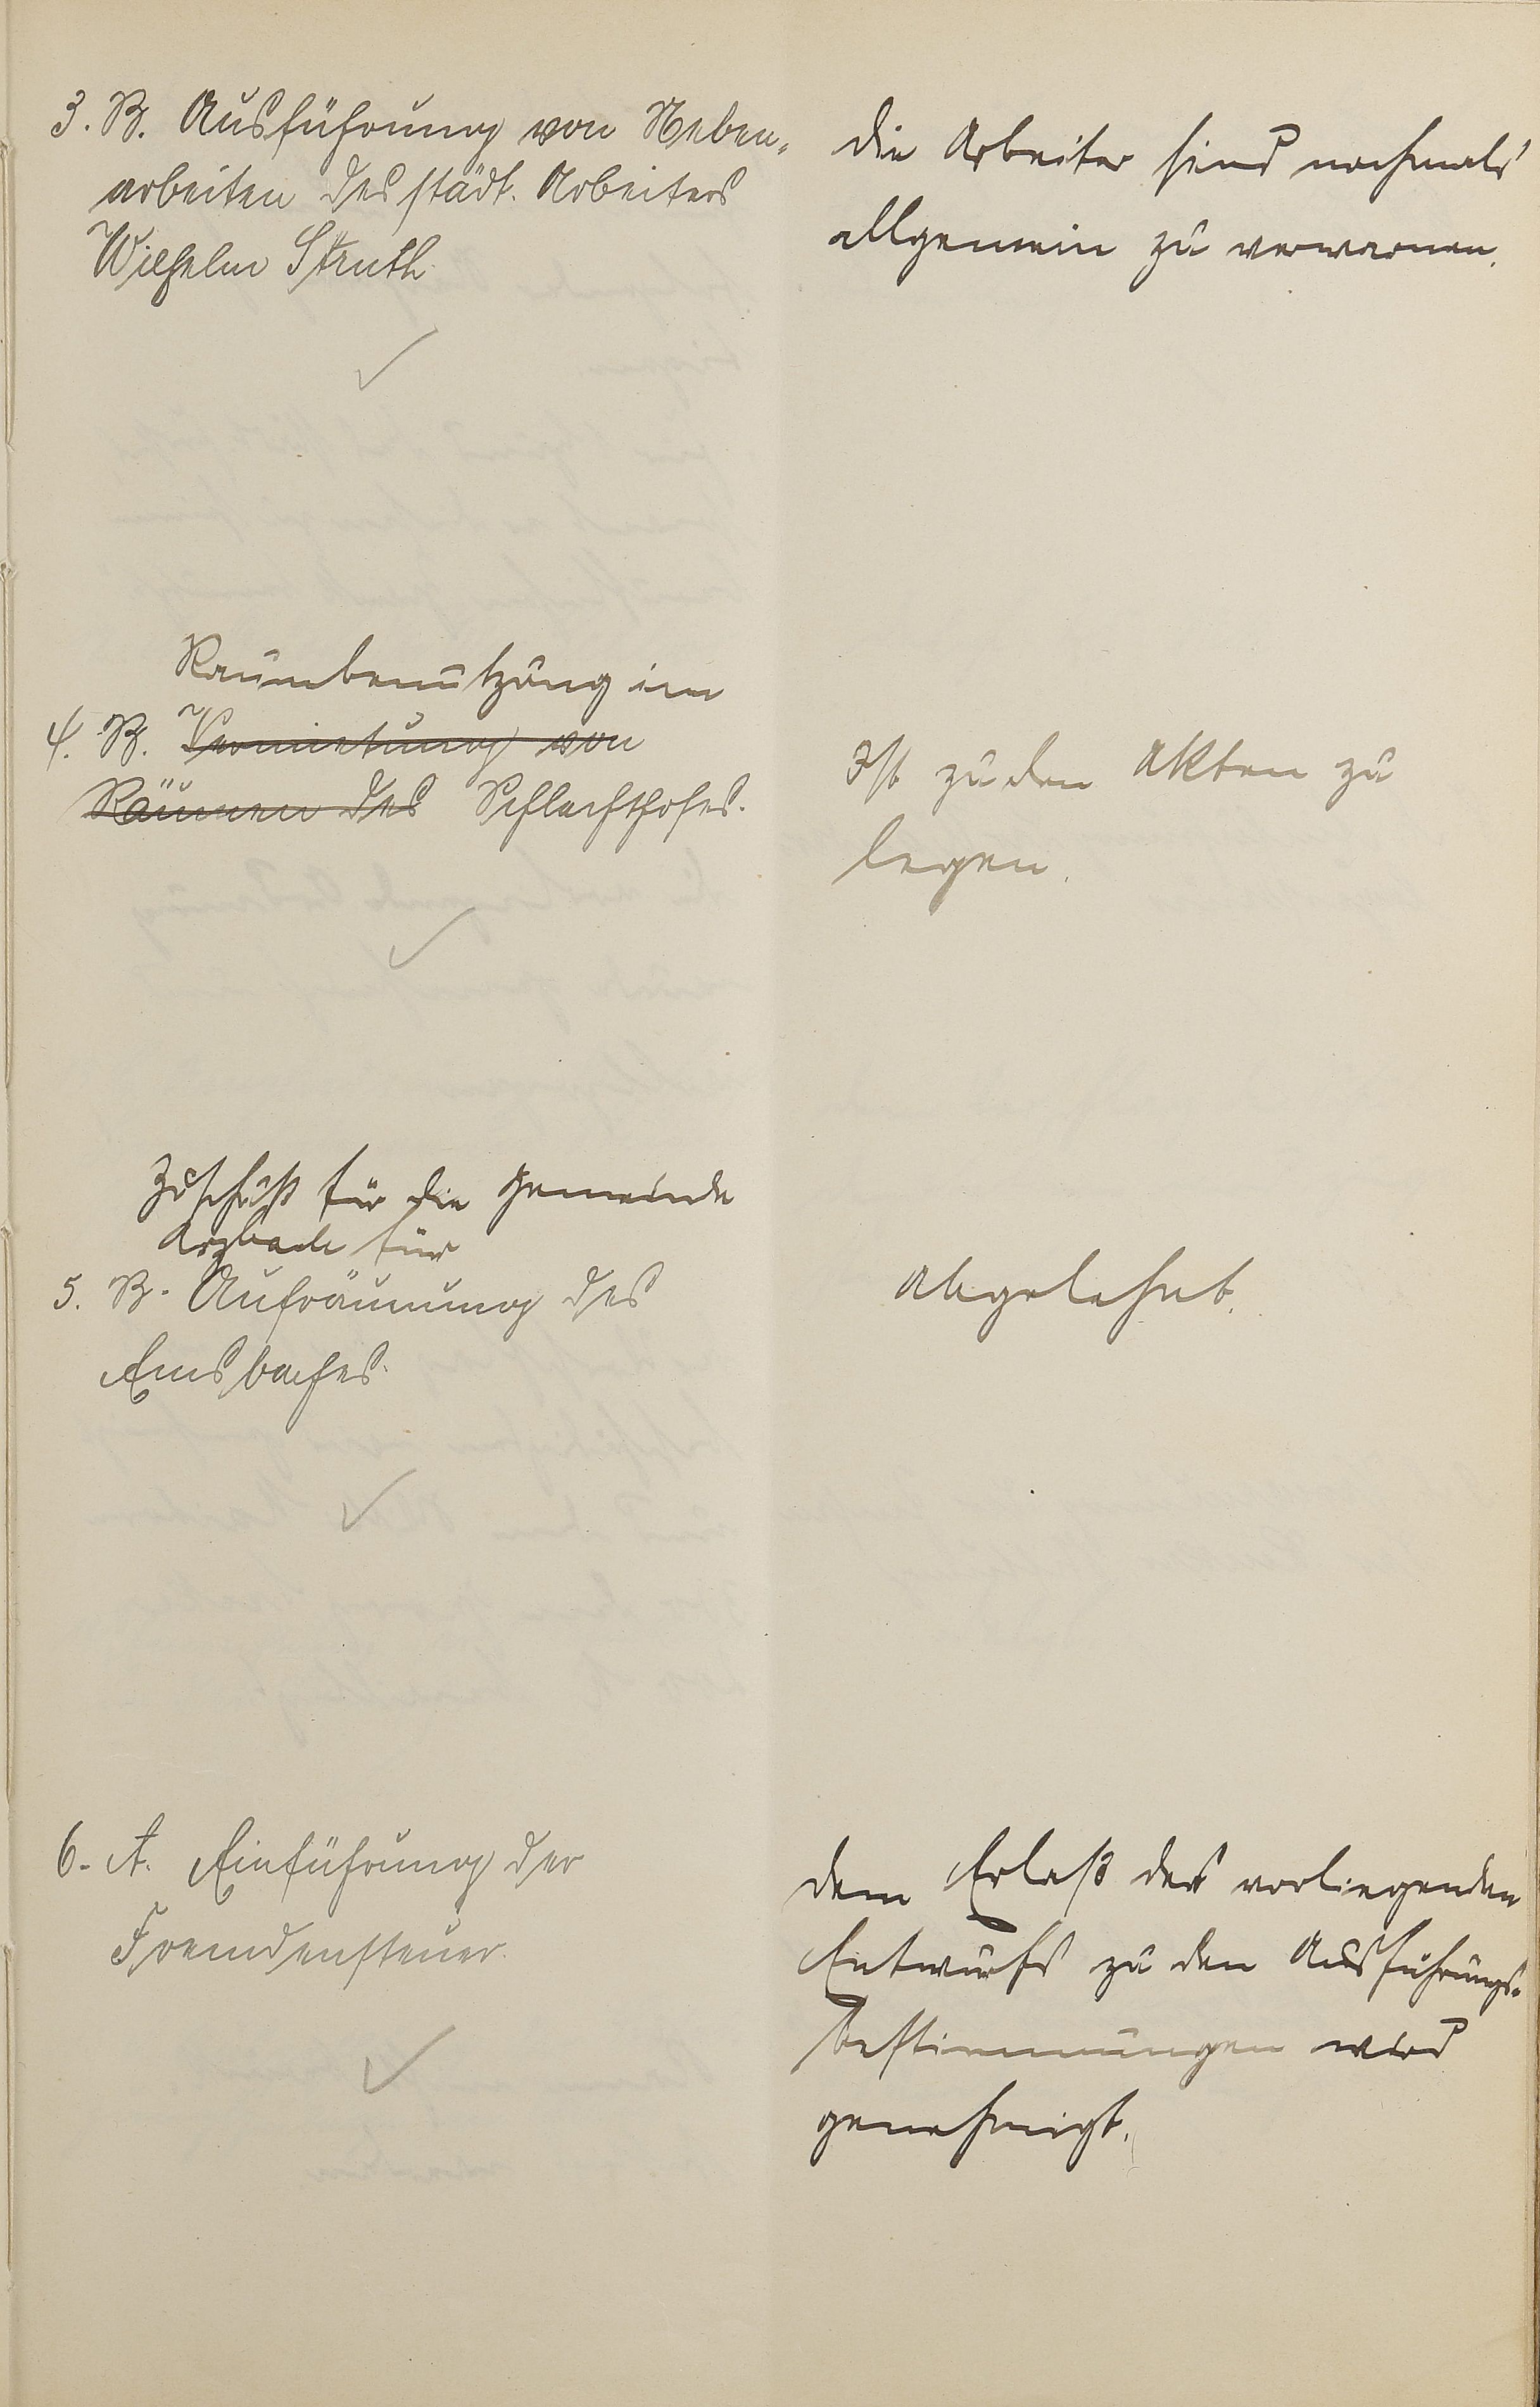 3. B. Ausführung von Neben-
arbeiten des städt. Arbeiters
Wilhelm Struth.
Die Arbeiter sind nochmals
allgemein zu verwarnen.
Raumbenutzung im
4. B. Vermietung von
Räumen des Schlachthofes.
Ist zu den Akten zu
legen.
Zuschuß für die Gemeinde
Arzbach für
5. B. Aufräumung des
Emsbaches.
Abgelehnt.
6. A. Einführung der
Fremdensteuer.
Dem Erlaß des vorliegenden
Entwurfs zu den Ausführungs-
bestimmungen wird
genehmigt.